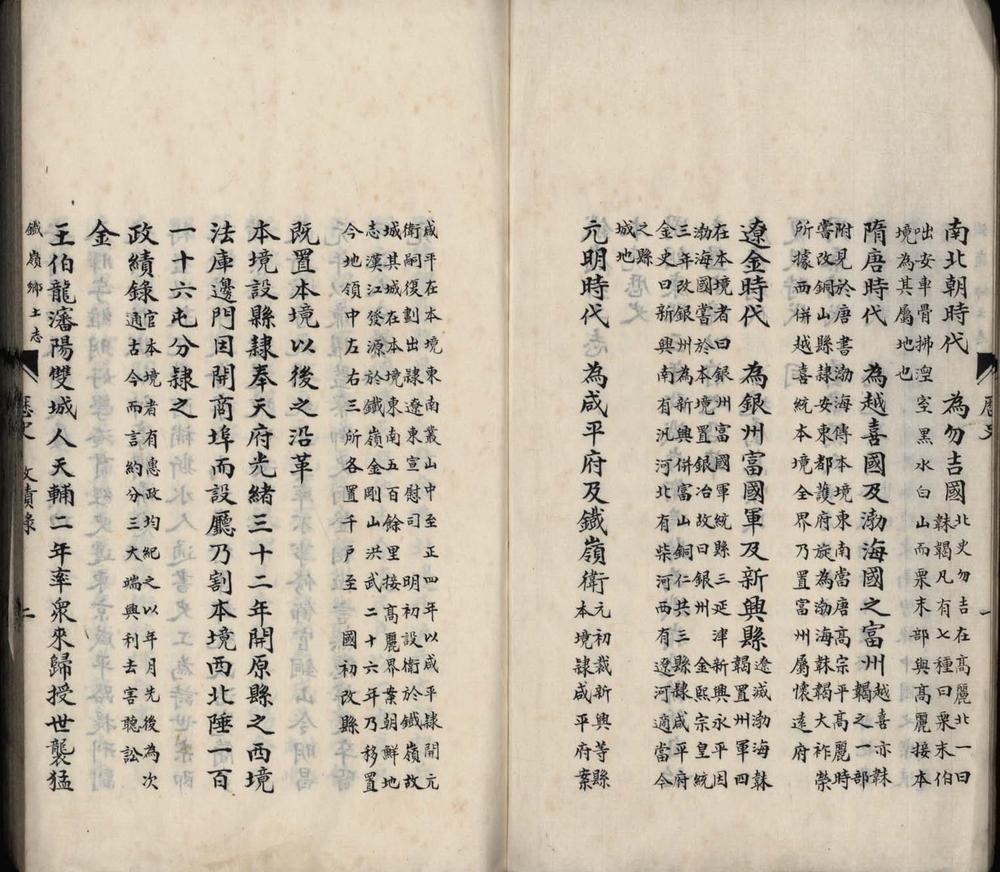 歷史 一
南北朝時代　為勿吉國
北史勿吉在高麗北一曰
靺鞨凡有七種曰粟末伯
咄安車骨拂湼室黑水白山而粟末部與高麗接本
境為其屬地也
隋唐時代　為越喜國及渤海國之富州
越喜亦靺
鞨之一部
附見於唐書渤海傳本境東南當唐高宗平高麗時
嘗改銅山縣隸安東都護府旋為渤海靺鞨大祚榮
所據而併越喜統本境全界乃置富州屬懷遠府
遼金時代　為銀州富國軍及新興縣
遼滅渤海靺
鞨置州軍四
在本境者曰銀州富國軍統縣三延津新興永平因
渤海國嘗於本境置銀冶故曰銀州　金熙宗皇統
三年改銀州為新興併富山銅仁共三縣隸咸平府
金史曰新興南有汎河北有柴河西有遼河適當今
之縣
城地
元明時代　為咸平府及鐵嶺衛
元初裁新興等縣
本境隸咸平府案
咸平在本境東南叢山中至正四年以咸平隸開元
衛嗣復劃出隸遼東宣慰司　明初設衛於鐵嶺故
城其城在本境東南五百餘里接高麗界案朝鮮地
志漢江發源於鐵嶺金剛山洪武二十六年乃移置
今地領中左右三所各置千戶至　國初改縣
既置本境以後之沿革
本境設縣隸奉天府光緒三十二年開原縣之西境
法庫邊門因開商埠而設廳乃割本境西北陲一百
一十六屯分隸之
政績錄
官本境者有惠政均紀之以年月先後為次
通古今而言約分三大端興利去害聽訟
金
王伯龍瀋陽雙城人天輔二年率衆來歸授世襲猛
鐵嶺鄉土志 歷史 政績錄 二